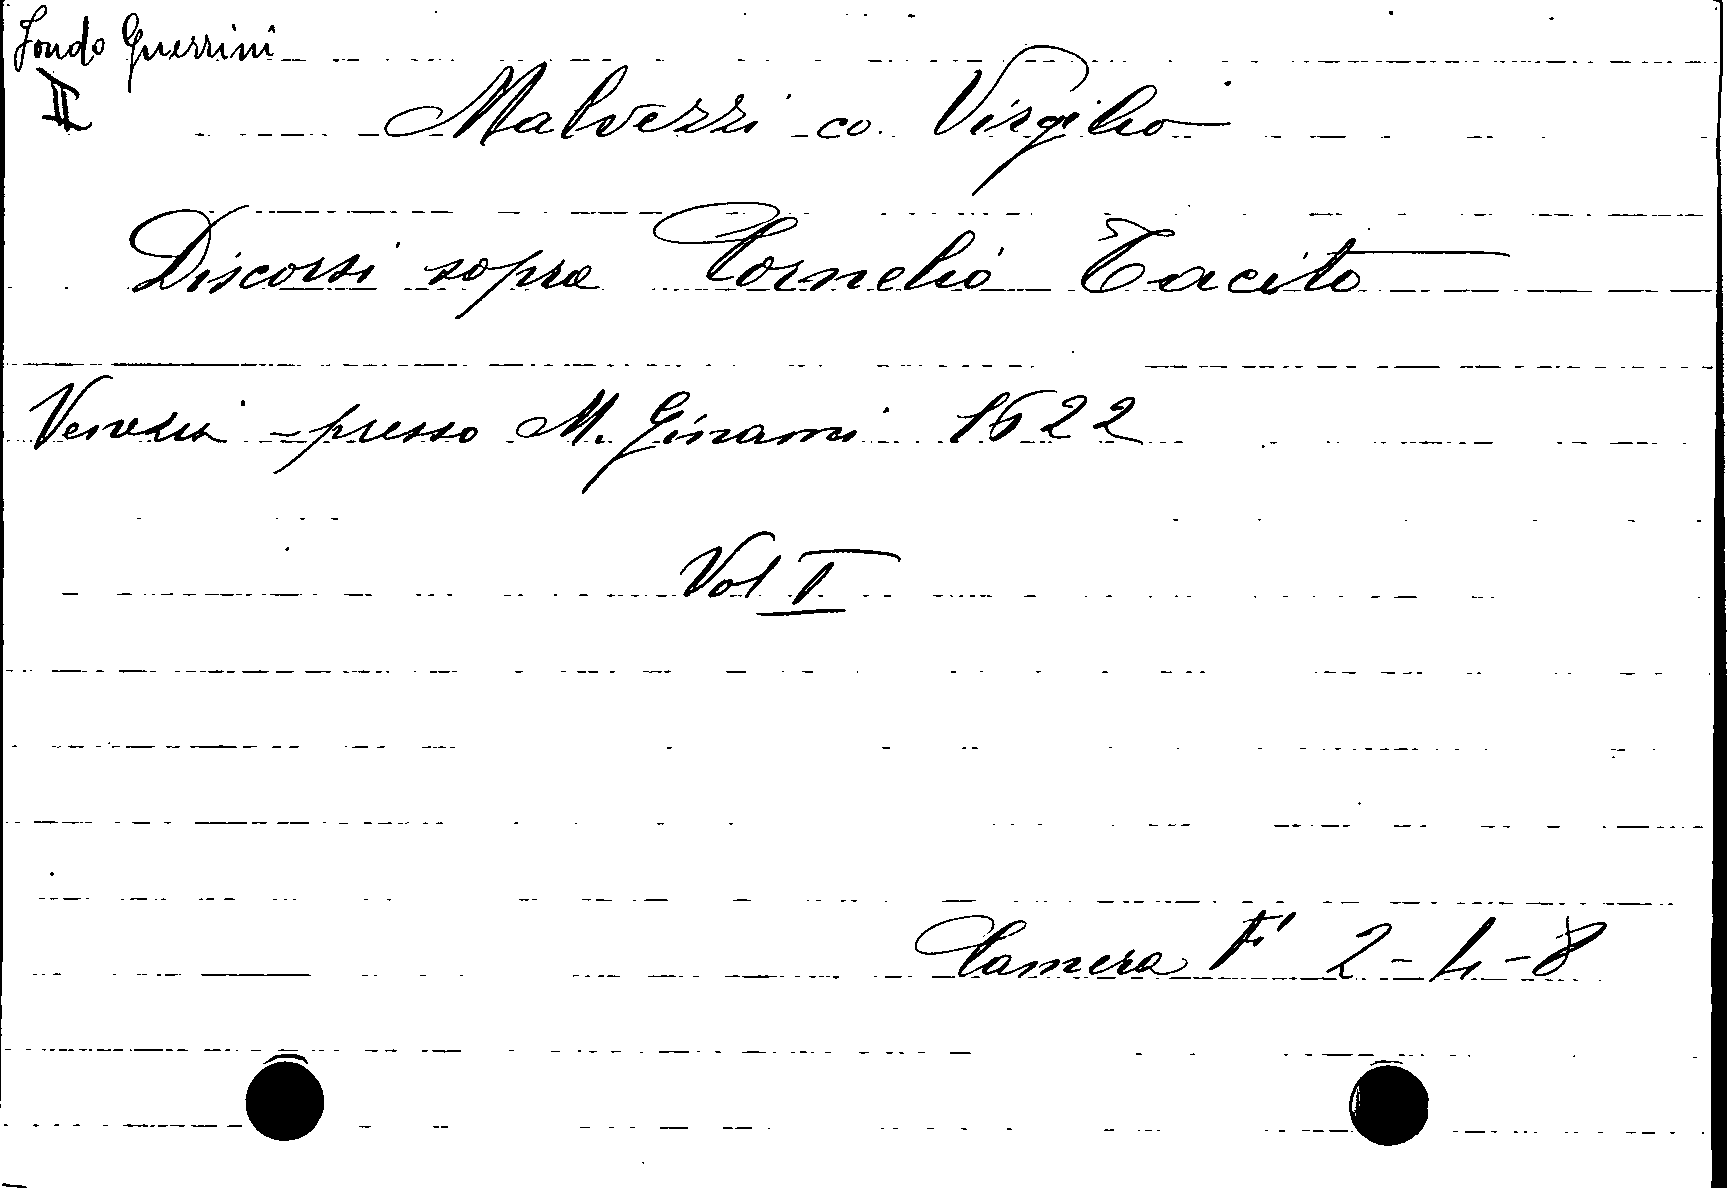 Fondo Guerrini
II
Malvezzi co. Virgilio
Discorsi sopra Cornelio Tacito
Venezia - presso M. Ginami 1622
Vol I
Camera F 2-4-8